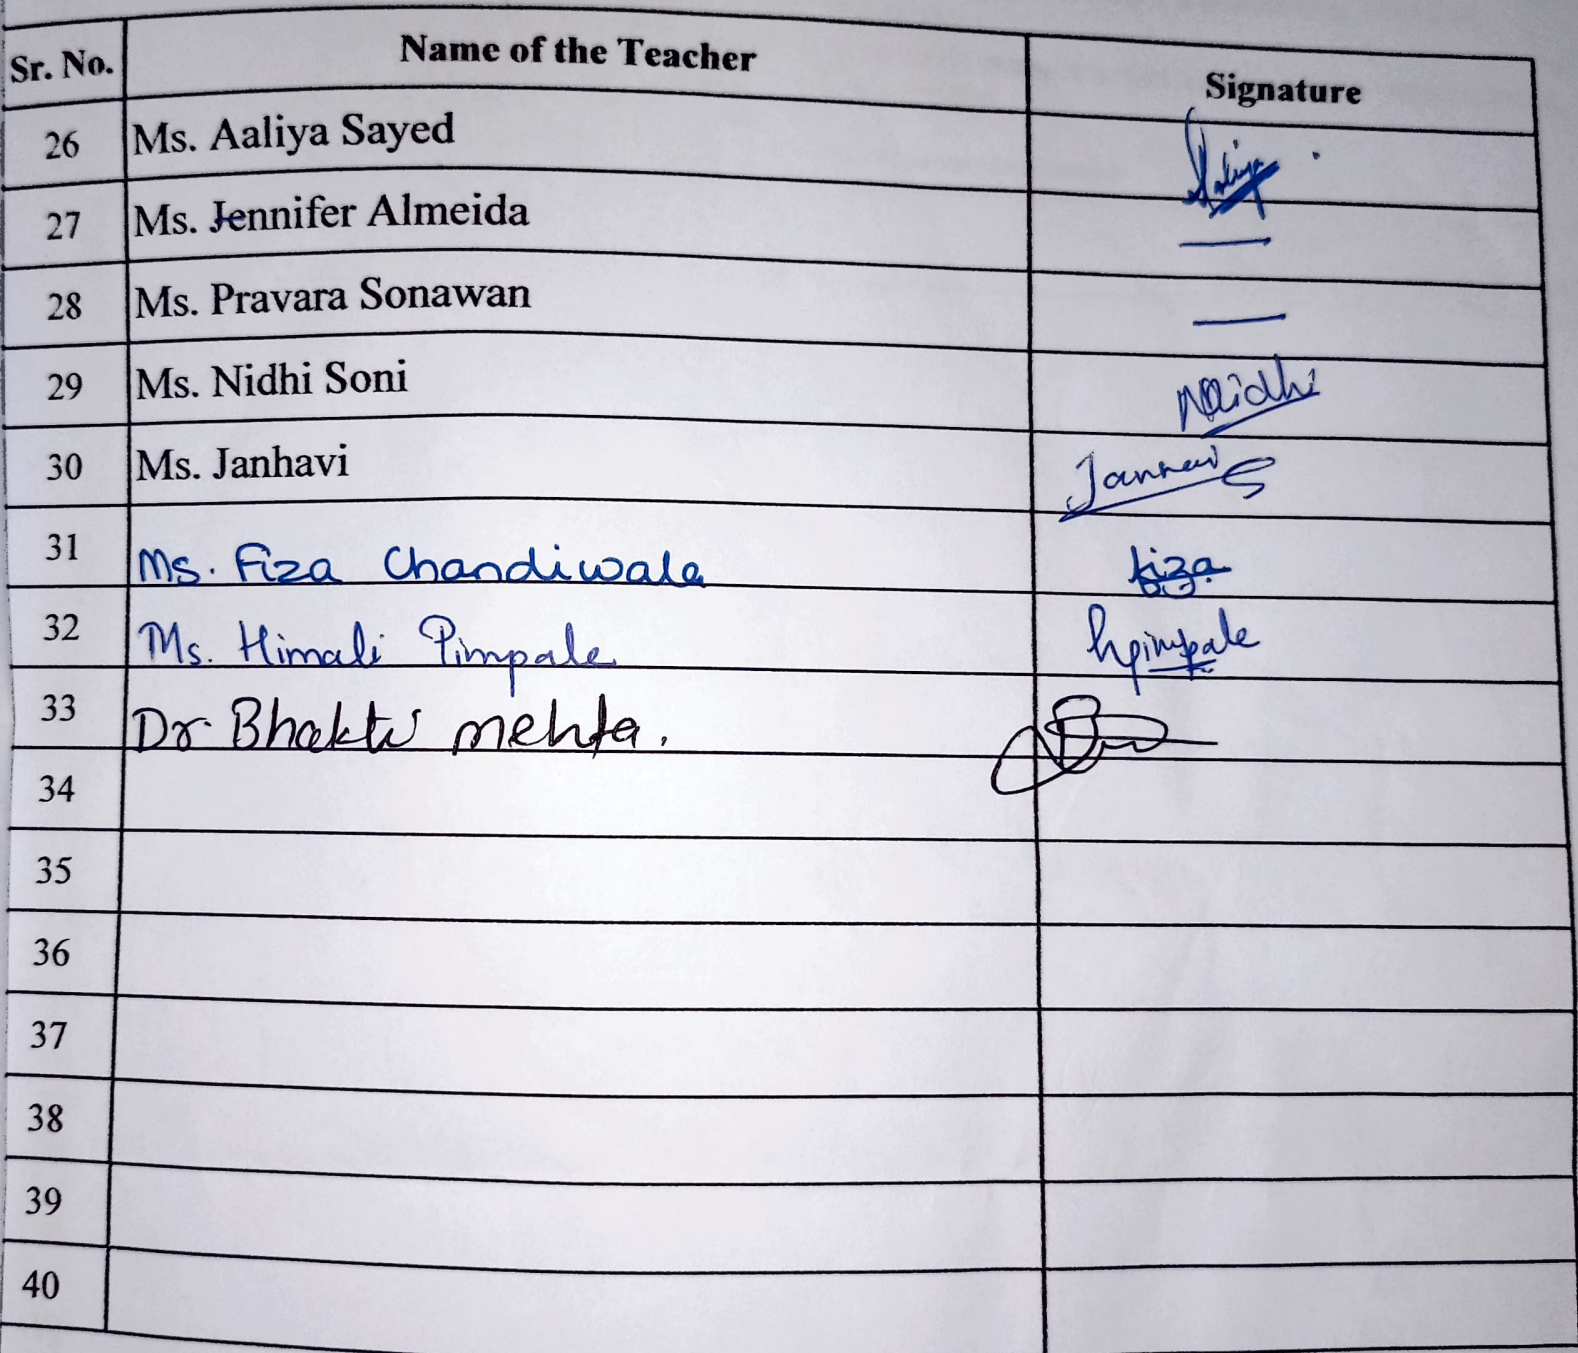 Sr. No. Name of the Teacher Signature
26 Ms. Aaliya Sayed Aaliya
27 Ms. Jennifer Almeida —
28 Ms. Pravara Sonawan —
29 Ms. Nidhi Soni Nidhi
30 Ms. Janhavi
31 Ms. Fiza Chandiwala fiza
32 Ms. Himali Pimpale hpimpale
33 Dr. Bhakti mehta.
34
35
36
37
38
39
40